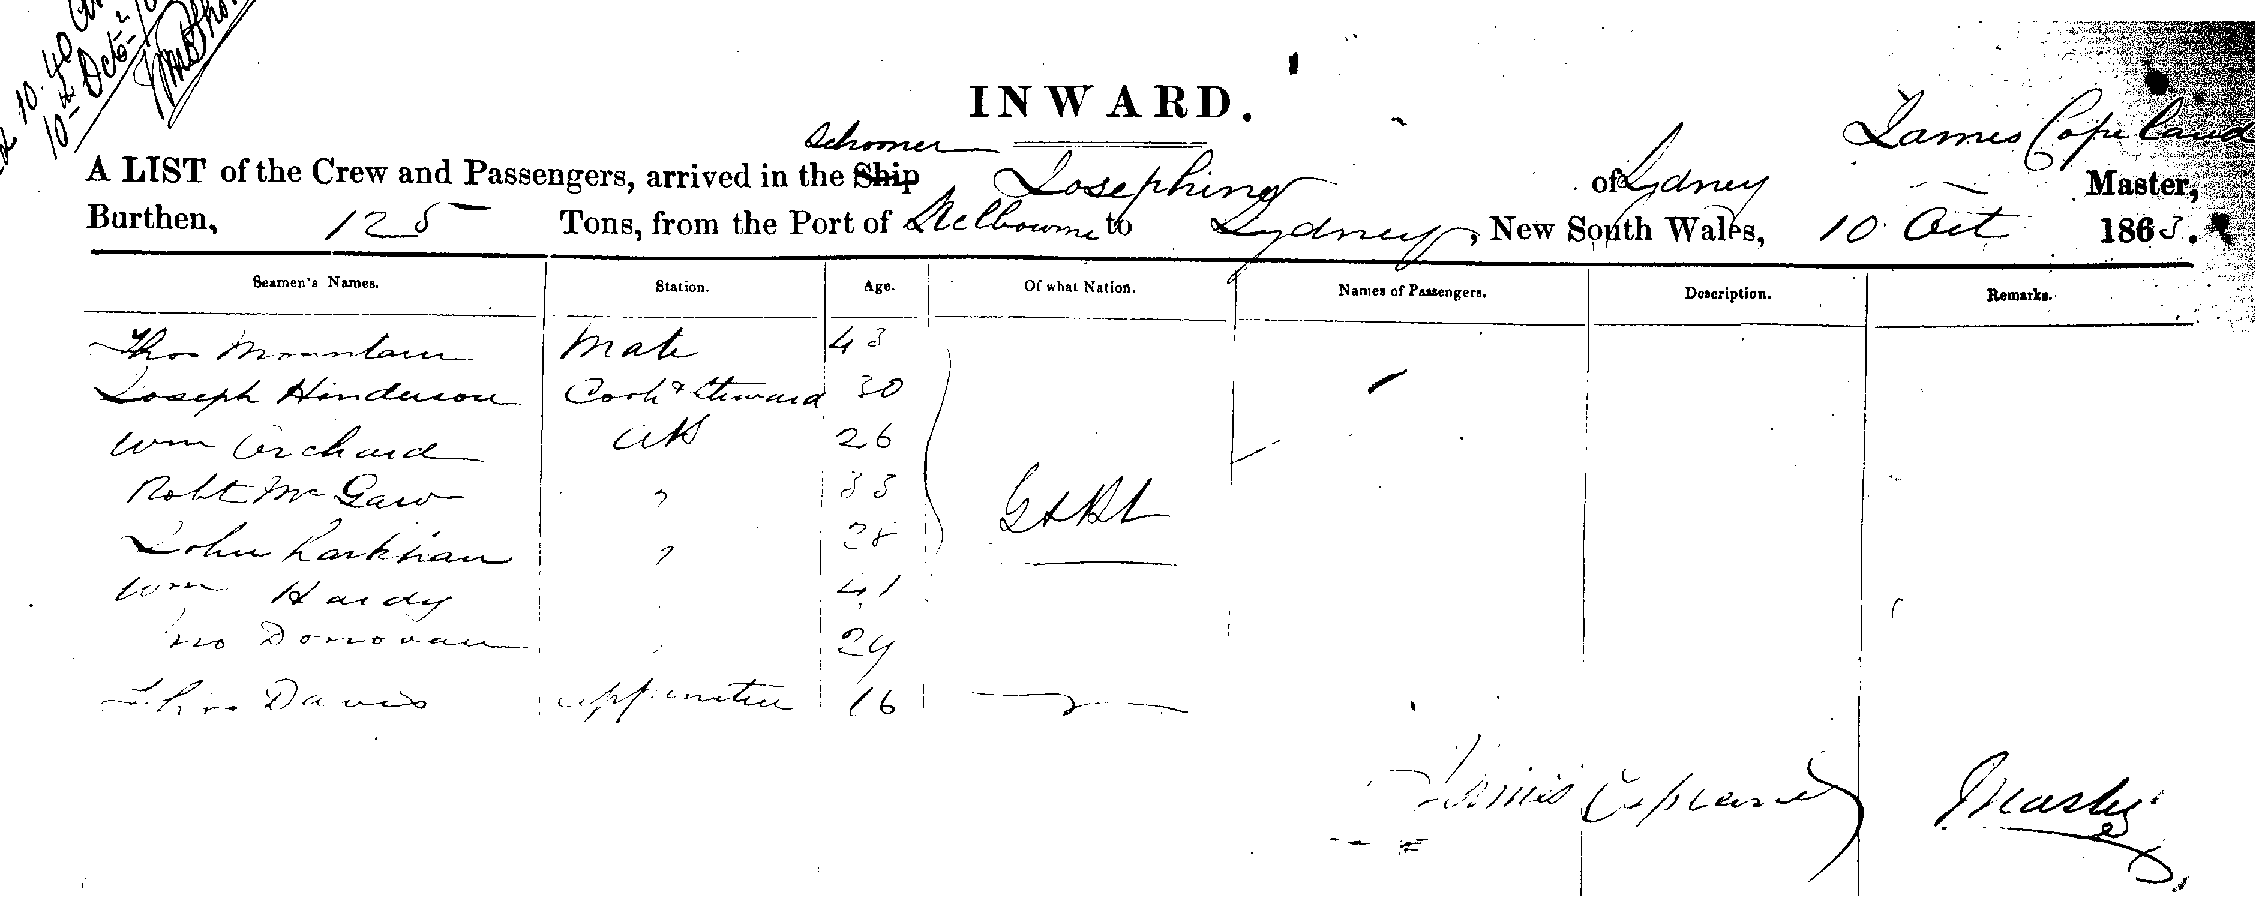 10.40
10th Octr
INWARD.
Schooner James Copeland
A LIST of the Crew and Passengers, arrived in the Ship Josephine of Sydney Master,
Burthen, 125 Tons, from the Port of Melbourne to Sydney, New South Wales, 10 Oct 1863.
Seamen's Names. Station. Age. Of what Nation. Names of Passengers. Description. Remarks.
Thos Mountain Mate 43
Joseph Hinderson Cook & Steward 30
Wm Orchard AB 26
Robt McGaw " 33
Gt Bt
John Larkman " 28
Wm Hardy " 41
Jno Donovan " 29
Thos Davis Apprentice 16 "
James Copeland Master